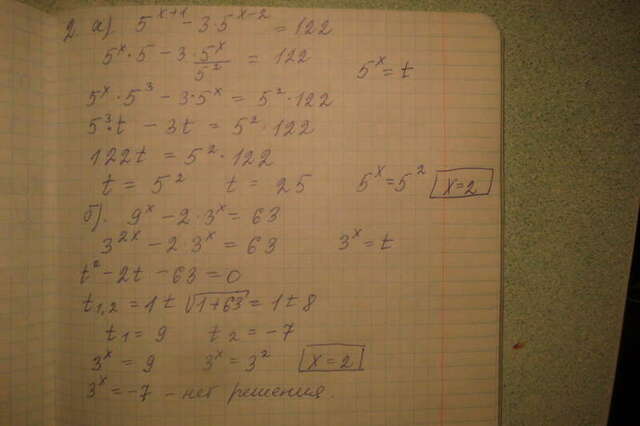 2. а) 5^(x+1) - 3·5^(x-2) = 122
5^x · 5 - 3 · 5^x/5^2 = 122
5^x = t
5^x · 5^3 - 3·5^x = 5^2 · 122
5^3·t - 3t = 5^2 · 122
122t = 5^2 · 122
t = 5^2 t = 25 5^x = 5^2 x = 2
б). 9^x - 2·3^x = 63
3^(2x) - 2·3^x = 63 3^x = t
t^2 - 2t - 63 = 0
t1,2 = 1 ± √(1+63) = 1 ± 8
t1 = 9 t2 = -7
3^x = 9 3^x = 3^2 x = 2
3^x = -7 - нет решения.